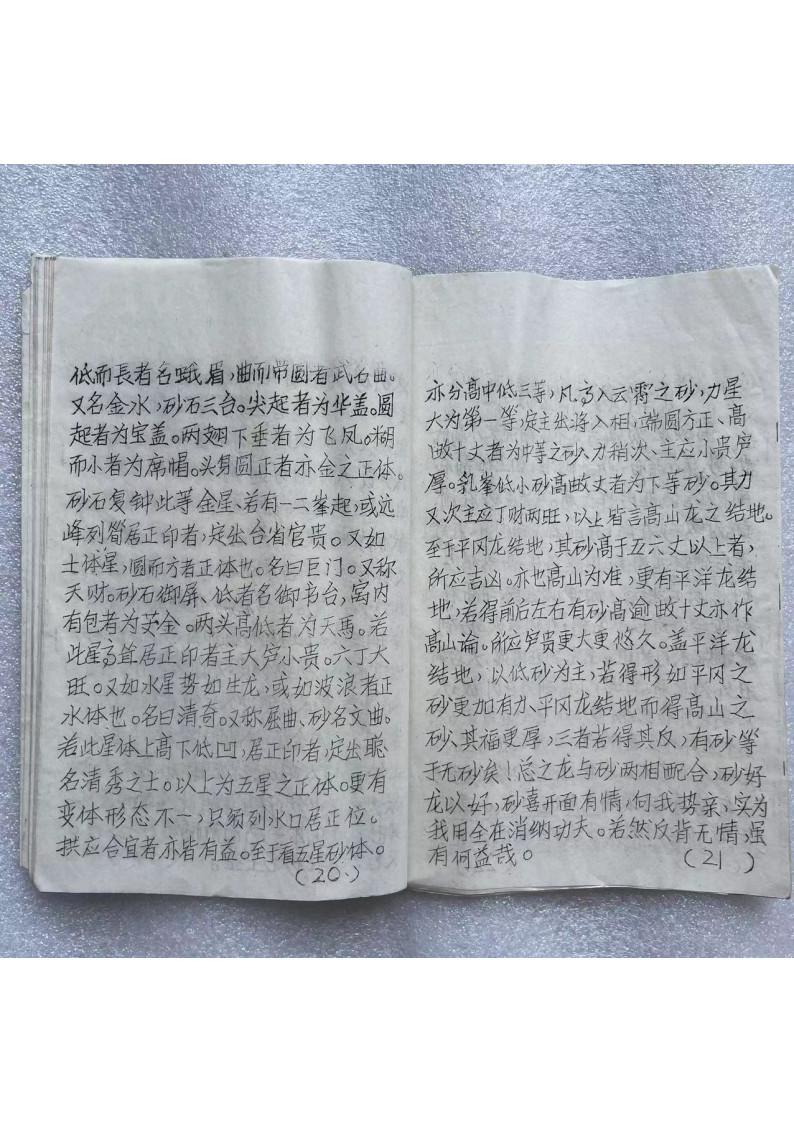 低而長者名蛾眉,曲而带圆者武名曲。
又名金水,砂石三台。尖起者为华盖。圆
起者为宝盖。两翅下垂者为飞凤。糊
而小者为席帽。头身圆正者亦金之正体。
砂石复钟此等金星、若有一二峯起,或远
峰列笋居正印者,定出台省官贵。又如
土体星,圆而方者正体也。名曰巨门。又称
天财。砂石御屏、低者名御书台,窝内
有包者为金。两头高低者为天馬。若
此星高耸居正印者主大贵小贵。六丁大
旺。又如水星势如生龙,或如波浪者正
水体也。名曰清奇。又称屈曲、砂名文曲。
若此星体上高下低凹,居正印者,定出聪
名清秀之士。以上为五星之正体。更有
变体形态不一,只须列水口居正位。
拱应合宜者亦皆有益。至于看五星砂体。
(20.)
亦分高中低三等,凡高入云霄之砂,力星
大为第一等定主出将入相,端圆方正、高
做十丈者为中等之砂、力稍次、主应小贵
厚。乳峯低小砂高做丈者为下等砂。其力
又次主应丁财两旺,以上皆言高山龙之结地。
至于平冈龙结地,其砂高于五六丈以上者,
所应吉凶。亦也高山为准,更有平洋龙结
地,若得前后左右有砂高逾做十丈亦作
高山论。所应贵更大更悠久。盖平洋龙
结地,以低砂为主,若得形如平冈之
砂更加有力、平冈龙结地而得高山之
砂、其福更厚,三者若得其反,有砂等
于无砂矣!总之龙与砂两相配合,砂好
龙以好,砂喜开面有情,向我势亲,实为
我用全在消纳功夫。若然反背无情,强
有何益哉。
(21)